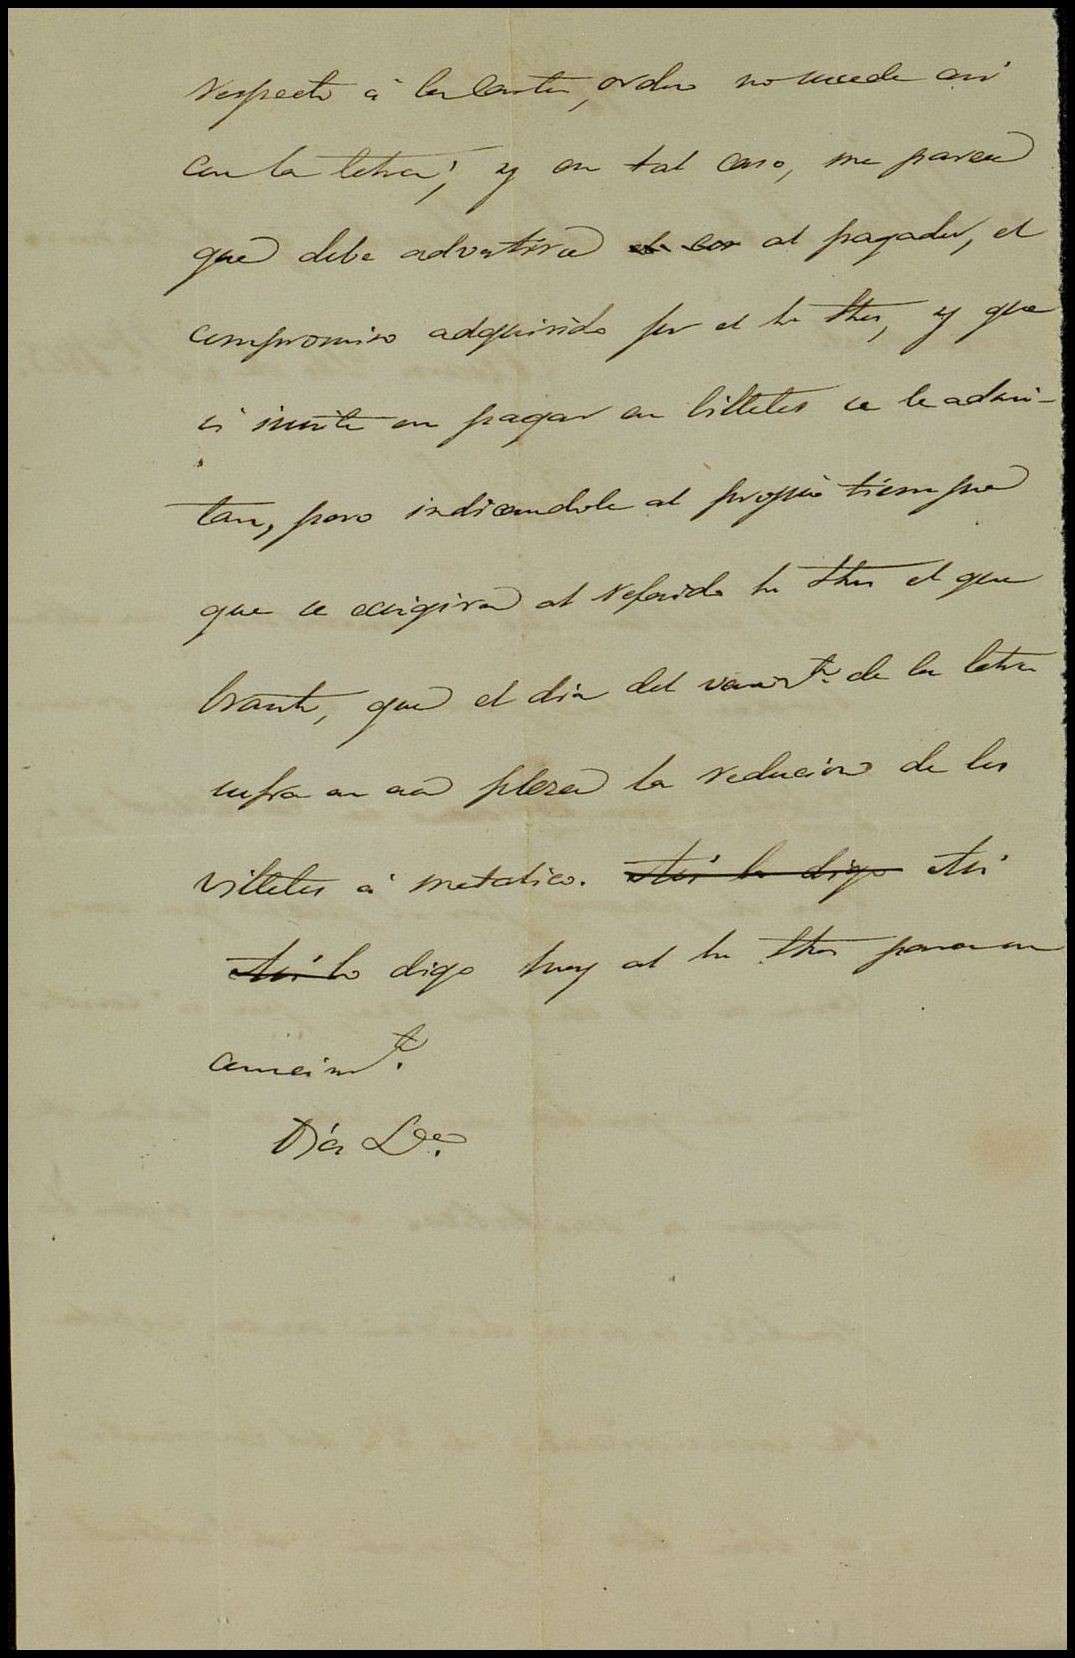 respecto á la carta, orden no sucede asi
con la letra; y en tal caso, me parece
que debe advertirse al pagador, el
compromiso adquirido por el Sr , y que
si insiste en pagar en billetes se le admi-
tan, pero indicandole al propio tiempo
que se exigira al referido Sr el que
brante, que el dia del vencimto. de la letra
sufra en esa plaza la reducion de los
villetes á metalico. Asi lo digo Asi
Asi lo digo hoy al Sr para su
conocimto.
Dios